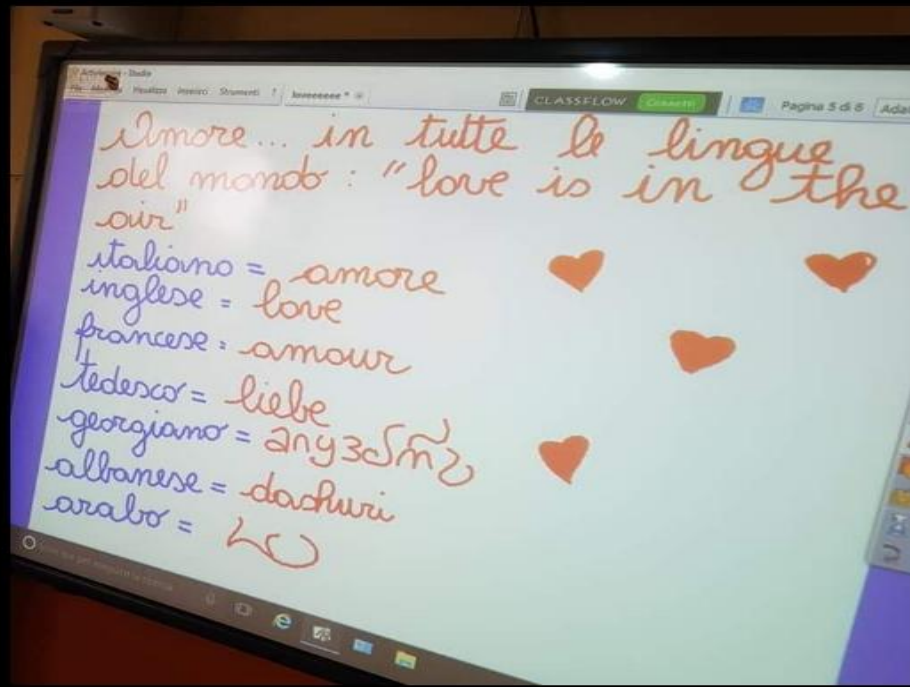 ActivInspire - Studio
File Modifica Visualizza Inserisci Strumenti ? loveeeeee *
CLASSFLOW Connetti Pagina 5 di 6
Amore... in tutte le lingue
del mondo: "love is in the
air"
italiano = amore
inglese = love
francese = amour
tedesco = liebe
georgiano =
albanese = dashuri
arabo =